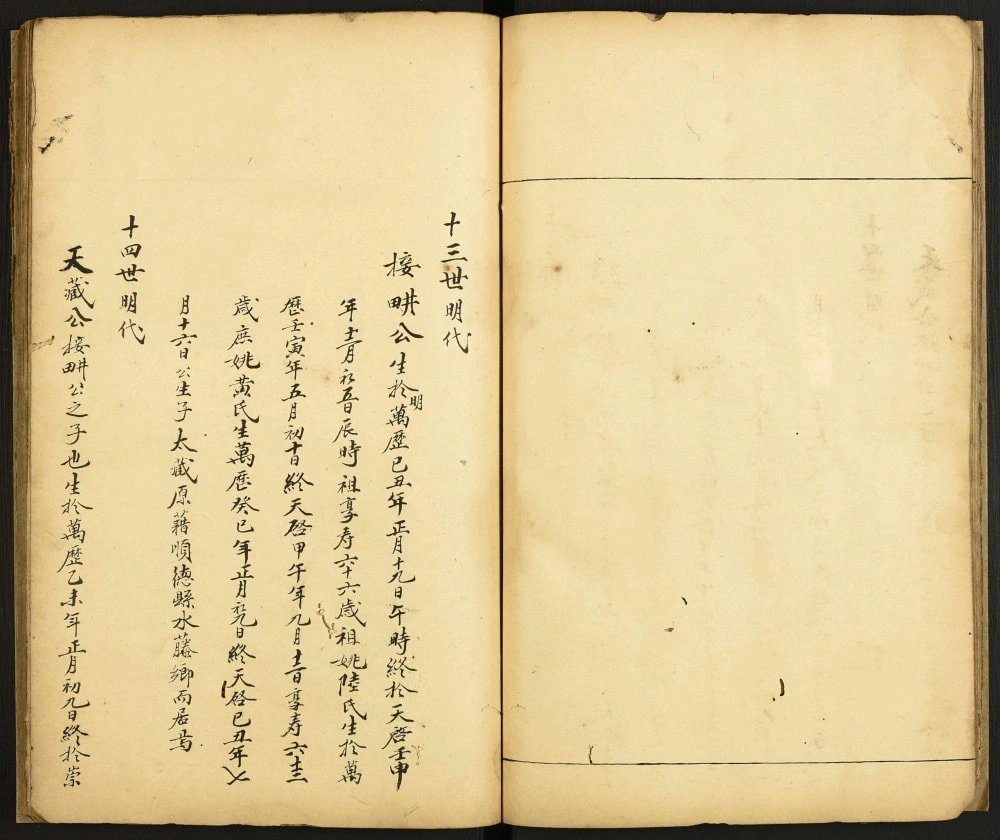 十三世明代
接畊公生於明萬歷己丑年正月十九日午時終於天啓壬申
年十二月初五日辰時祖享寿六十六歳祖姚陸氏生於萬
歷壬寅年五月初十日終天啓甲午年九月十二日享寿六十三
歳庶姚黄氏生萬歷癸巳年正月初九日終天啓己丑年
月十六日公生子太藏原藉順德縣水藤鄉而居焉
十四世明代
天藏公接畊公之子也生於萬歷乙未年正月初九日終於崇